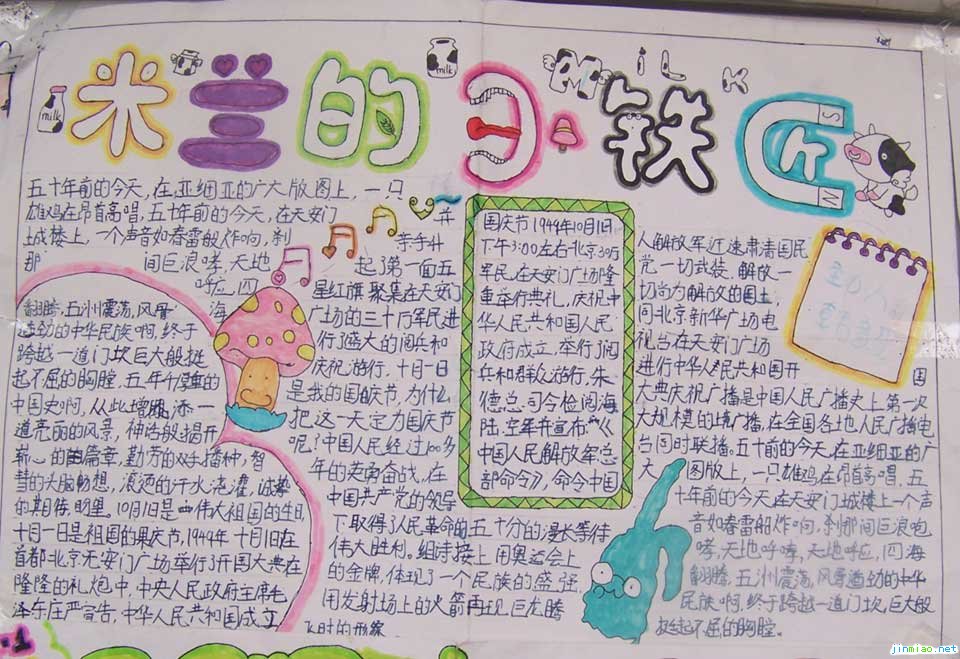 米兰的日铁匠
milk
milk
MiLK
S
N
五十年前的今天,在亚细亚的广大版图上,一只
雄鸡在昂首高唱,五十年前的今天,在天安门
城楼上,一个声音如春雷般炸响,刹
那间巨浪哮,天地
呼应,四海
翻腾,五洲震荡,风骨
遒劲的中华民族啊,终于
跨越一道门坎巨大般挺
起不屈的胸膛,五千年
中国史啊,从此增添一
道亮丽的风景,神话般揭开
崭心的篇章,勤劳的双手播种,智
慧的大脑畅想,滚烫的汗水浇灌,诚挚
的期待,明里。10月1日是伟大祖国的生日,
十月一日是祖国的果庆节,1949年十月1日在
首都北京天安门广场举行开国大典在
隆隆的礼炮中,中央人民政府主席毛
泽东庄严宣告,中华人民共和国成立
并
等等升
起了第一面五
星红旗聚集在天安门
广场的三十万军民进
行了盛大的阅兵和
庆祝游行,十月一日
是我的国庆节,为什么
把这一天定为国庆节
呢?中国人民经过100多
年的英勇奋战,在
中国共产党的领导
下,取得了人民革命的
伟大胜利。
五十分的漫长等待
上用奥运会上
的金牌,体现了一个民族的盛强
用发射场上的火箭再现巨龙腾
飞时的形象
国庆节1949年10月1日
下午3:00左右北京30万
军民,在天安门广场隆
重举行典礼,庆祝中
华人民共和国人民
政府成立,举行了阅
兵和群众游行,朱
德总司令检阅海
陆,空军并宣布《
中国人民解放军总
部命令》,命令中国
人解放军迅速肃清国民
党一切武装,解放一
切尚力解放的国土,
同北京新华广场电
视台在天安门广场
进行中华人民共和国开国
大典庆祝广播是中国人民广播史上第一次
大规模的境广播,在全国各地人民广播电
台同时联播。五十前的今天,在亚细亚的广
大图版上,一只雄鸡在昂首高唱,五
十年前的今天,在天安门城楼上一个声
音如春雷般炸响,刹那间巨浪咆
哮,天地呼哮,天地呼应,四海
翻腾,五洲震荡,风骨遒劲的中华
民族啊,终于跨越一道门坎,巨大般
挺起不屈的胸膛。
jinmiao.net